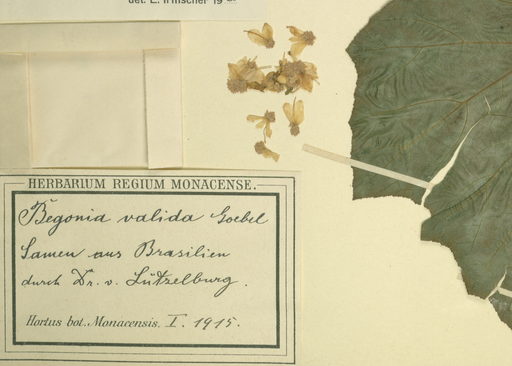 det. E. Irmscher 19
HERBARIUM REGIUM MONACENSE.
Begonia valida Goebel
Samen aus Brasilien
durch Dr. v. Lützelburg.
Hortus bot. Monacensis. I. 1915.